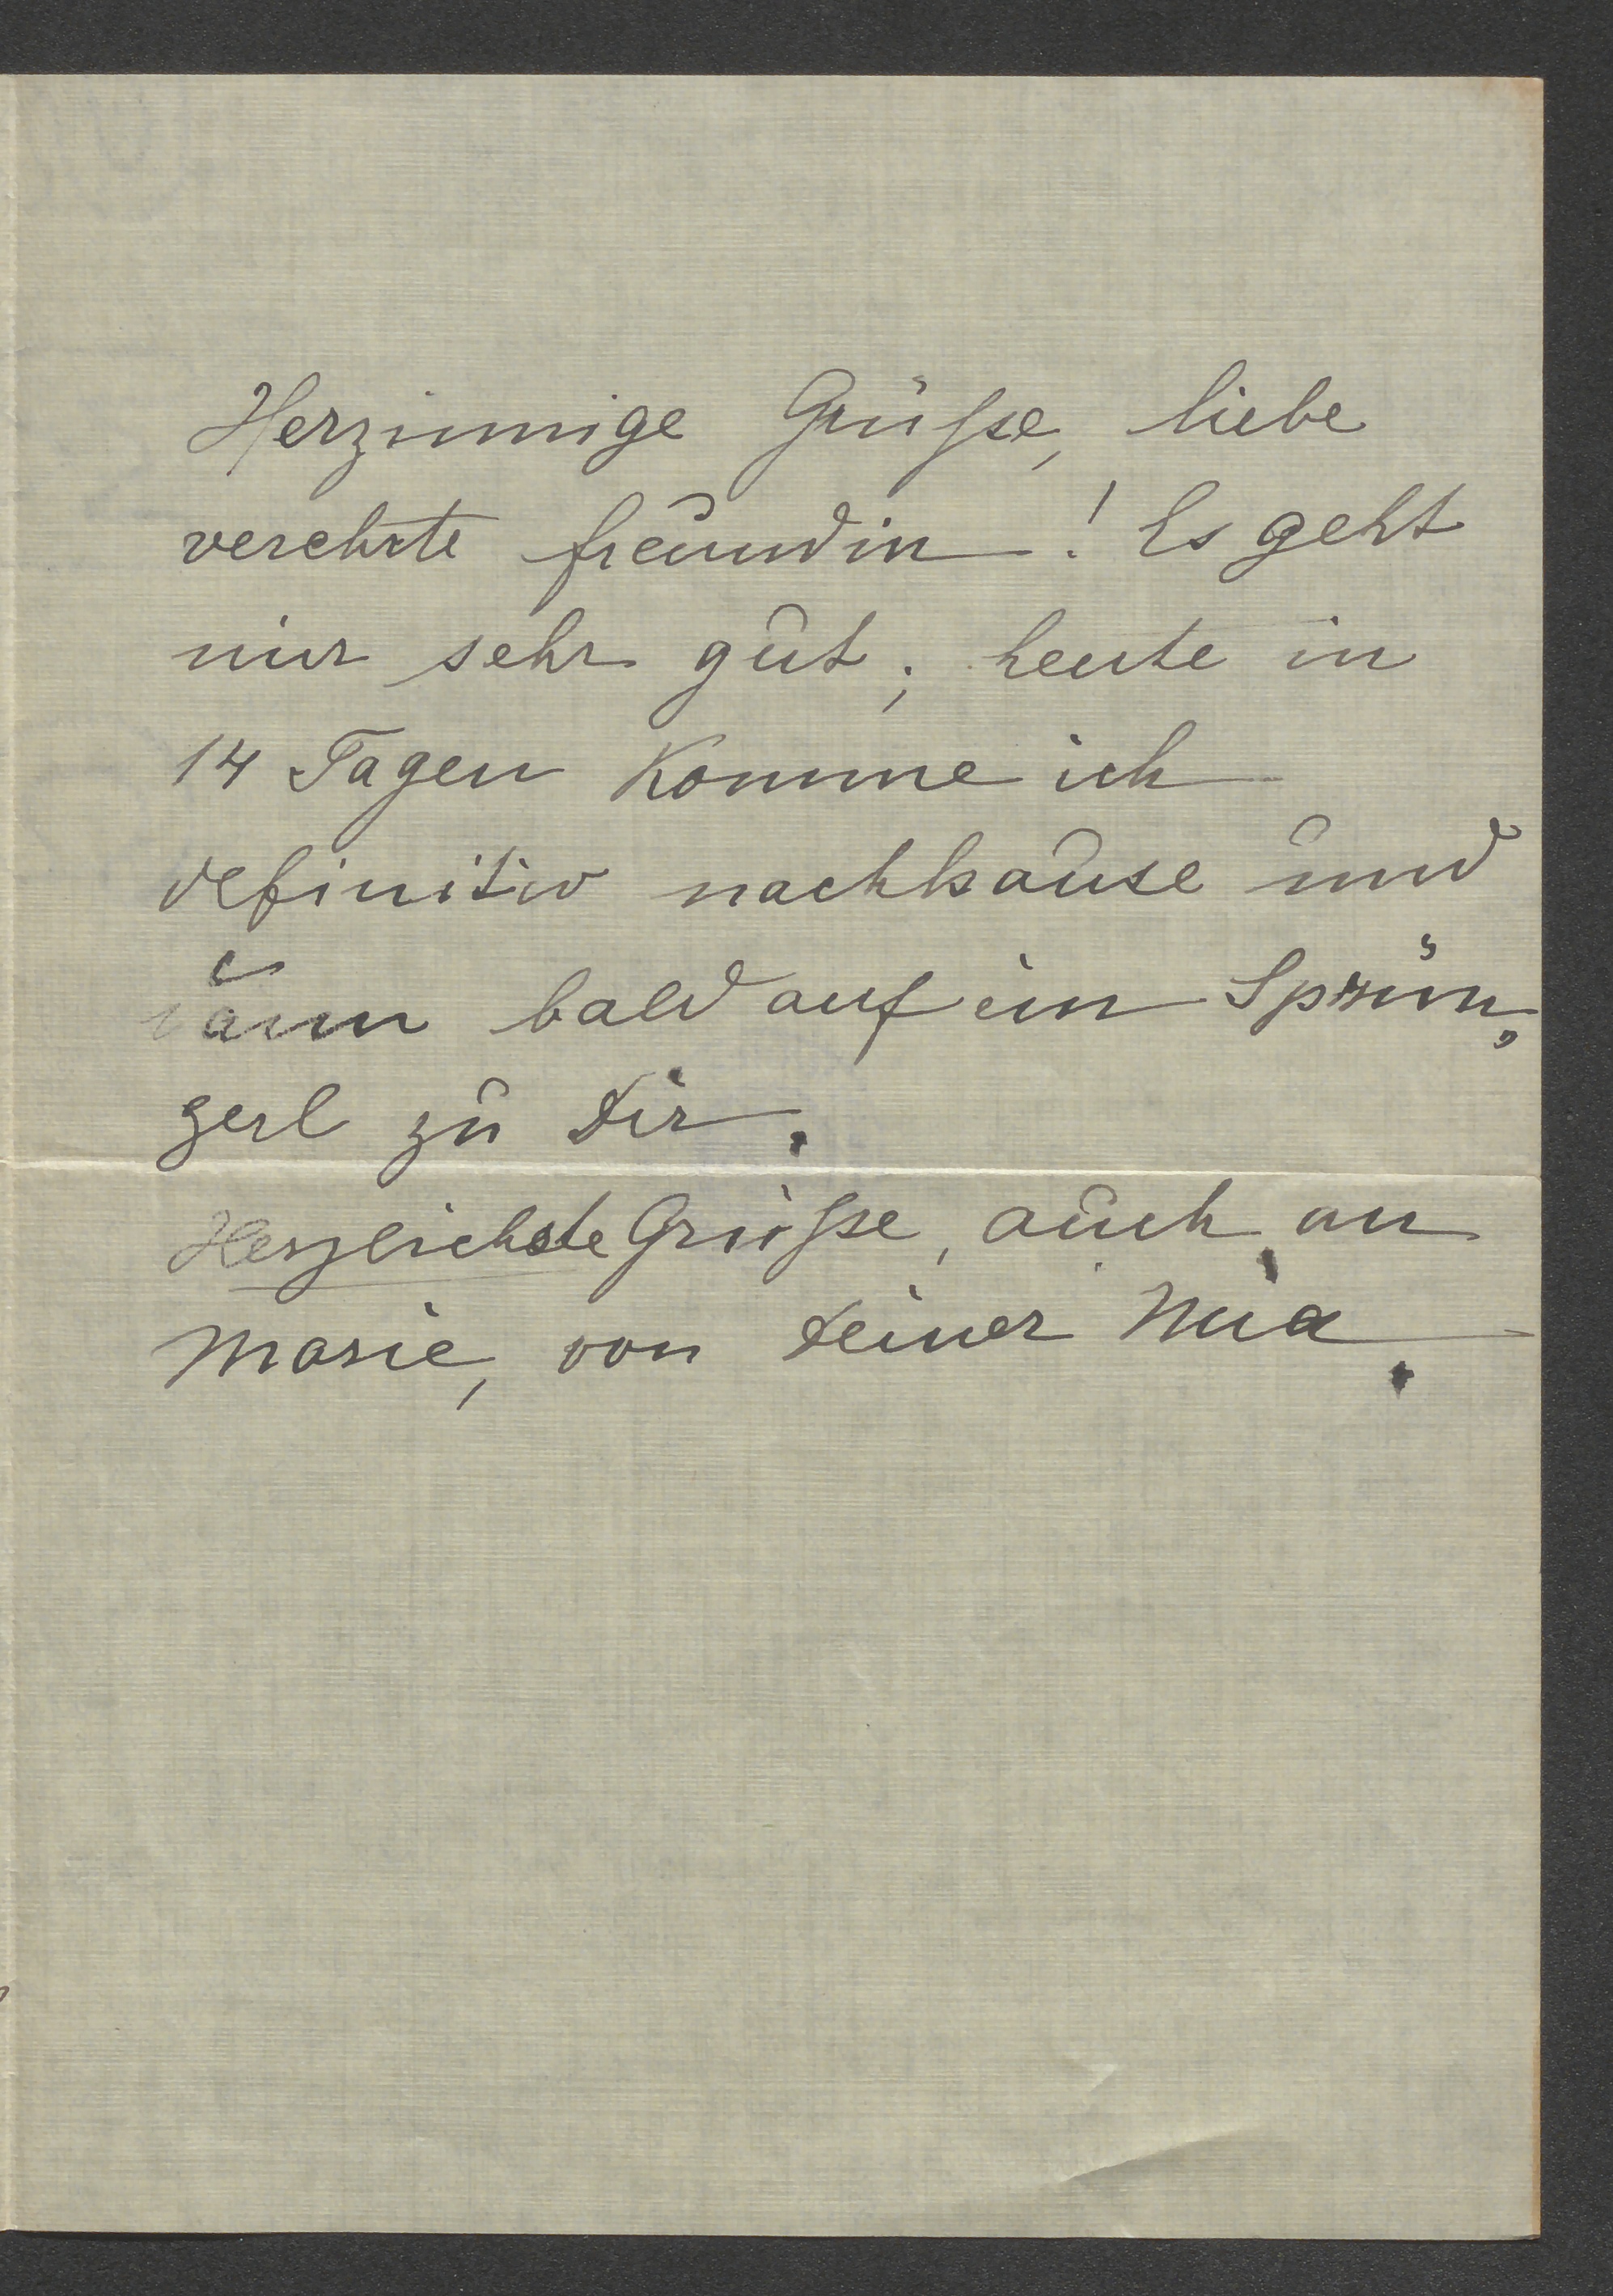 Herzinnige Grüße, liebe
verehrte Freundin! Es geht
mir sehr gut; heute in
14 Tagen komme ich
definitiv nachhause und
dann bald auf ein Sprün¬
gerl zu Dir.
Herzlichste Grüße, auch an
Marie, von Deiner Mia.